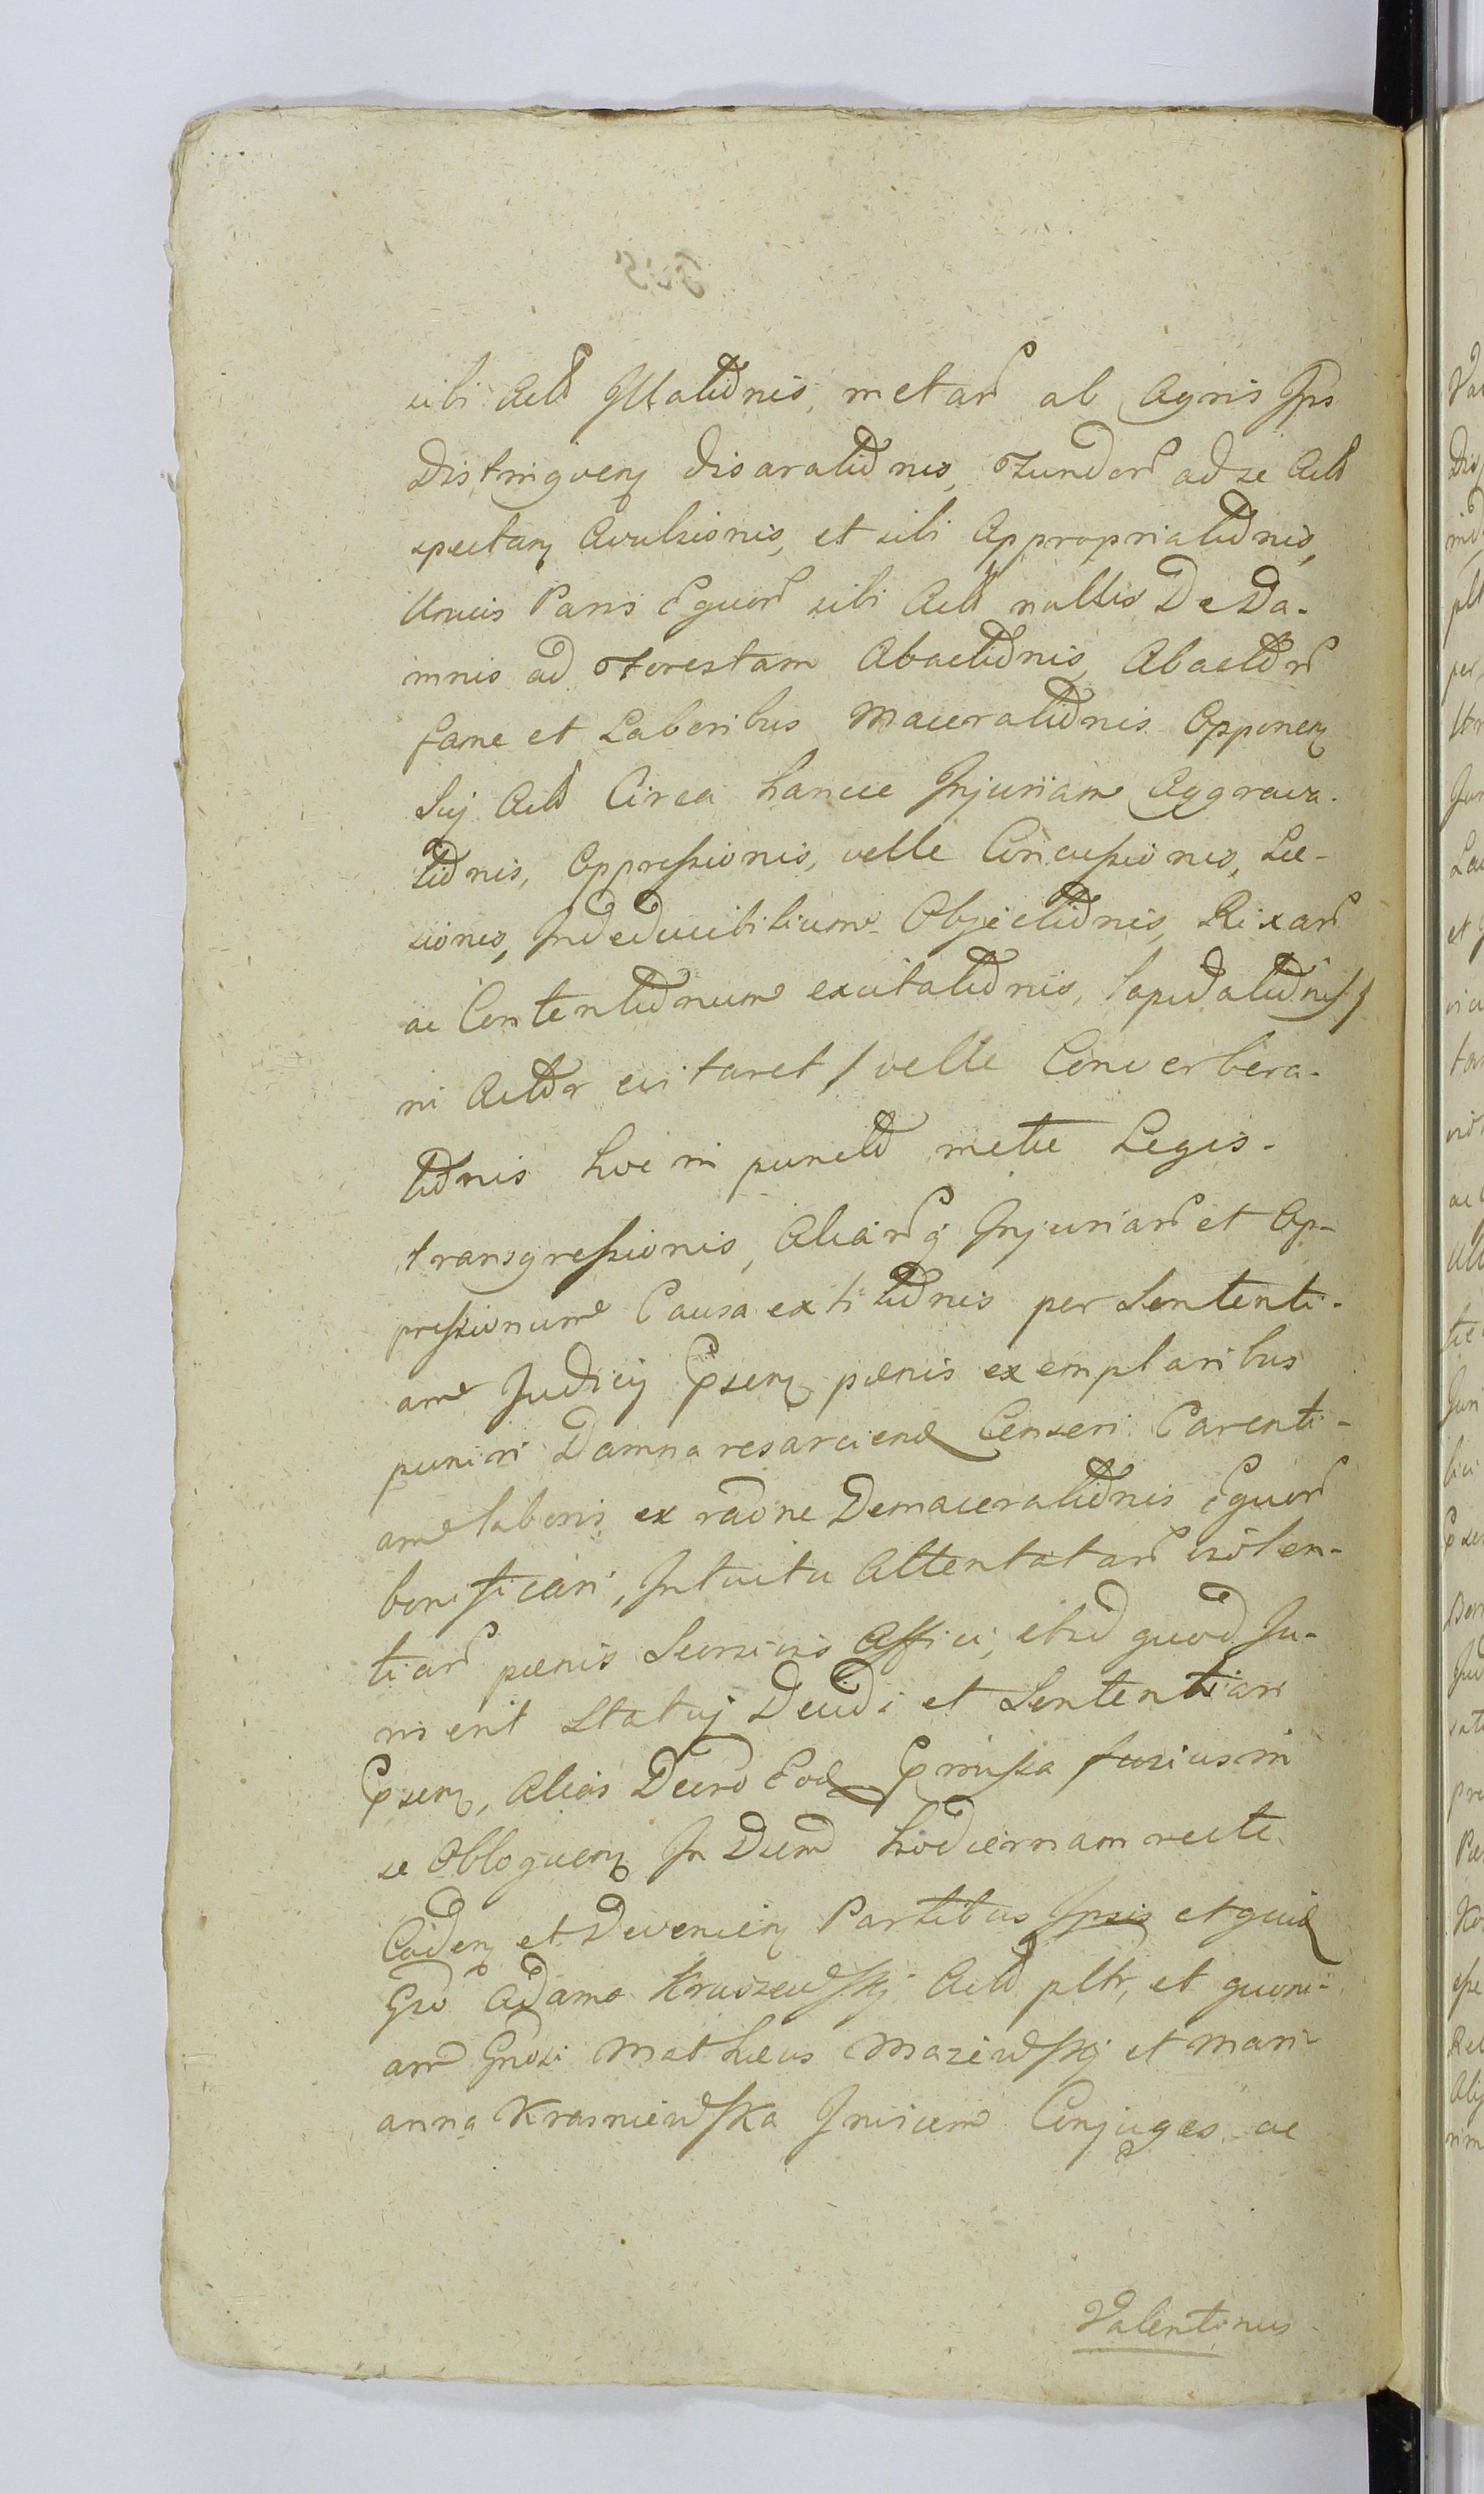 sibi Actō Illatiōnis, metarū ab Agris Ipō
Distinguenȝ disaratiōnis, Fundorū ad se Actō
spectanȝ Avulsionis, et sibi Appropriatiōnis,
Unius Paris Equorū sibi Actō nullis De Da-
mnis ad Forestam Abactiōnis, Abactorū
fame et Laboribus Maceratiōnis Opponenȝ
Suj Actō Circa hancce Injuriam Aggrava-
tiōnis, Oppressionis, velle Concussionis, Lae-
sionis, Indeducibilium Objectiōnis, Rixarū
ac Contentiōnum excitatiōnis, lapidatiōnis /
ni Actōr evitaret / velle Converbera-
tiōnis hoc in punctō metu Legis
transgressionis, Aliarūq Injuriarū et Op-
pressionum Causa extitiōnis per Sententi-
am Judicij Pȓsenȝ paenis exemplaribus
puniri Damna resarciend Censeri Carenti-
am laboris, ex raōne Demaceratiōnis Equorū
bonificari, Intuitu Attentatarū violen-
tiarū paenis Seorsivis Affici, et id quod Ju-
ris erit Statuj Decidi et Sententiari
Pȓsenȝ, alias Decrō Eod Pȓmissa fusius in
se Obloquenȝ In Diem hodiernam recte
Cadenȝ et Devenienȝ Partibus Ipsis et quid
Gȓso Adamo Kruszewskj Actō pltr, et quoni-
am Gnosi Mathaeus Maziewskj et Mari-
anna Krasniewska Invicem Conjuges ac
Valentinus